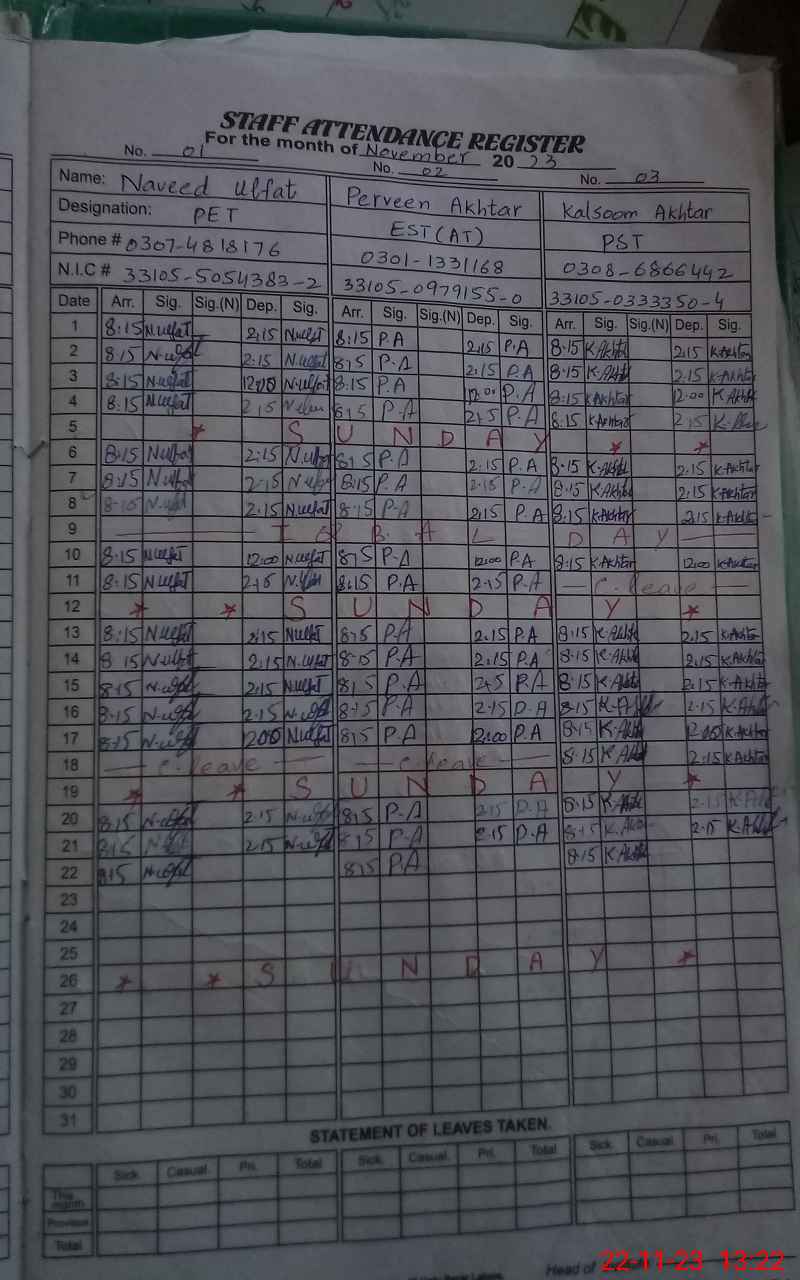 STAFF ATTENDANCE REGISTER
For the month of November 20 23
No. 01 No. 02 No. 03
Name: Naveed Ulfat Perveen Akhtar Kalsoom Akhtar
Designation: PET EST(AT) PST
Phone # 0307-4818176 0301-1331168 0308-6866442
N.I.C # 33105-5054383-2 33105-0979155-0 33105-0333350-4
Date Arr. Sig. Sig.(N) Dep. Sig. Arr. Sig. Sig.(N) Dep. Sig. Arr. Sig. Sig.(N) Dep. Sig.
1 8:15 N.ulfat 2:15 N.ulfat 8:15 P.A 2:15 P.A 8:15 K.Akhtar 2:15 K.Akhtar
2 8:15 N.ulfat 2:15 N.ulfat 8:15 P.A 2:15 P.A 8:15 K.Akhtar 2:15 K.Akhtar
3 8:15 N.ulfat 12:00 N.ulfat 8:15 P.A 12:00 P.A 8:15 K.Akhtar 12:00 K.Akhtar
4 8:15 N.ulfat 2:15 8:15 P.A 2:15 P.A 8:15 K.Akhtar 2:15
5 S U N D A Y
6 8:15 N.ulfat 2:15 N.ulfat 8:15 P.A 2:15 P.A 8:15 K.Akhtar 2:15 K.Akhtar
7 8:15 N.ulfat 2:15 N.ulfat 8:15 P.A 2:15 P.A 8:15 K.Akhtar 2:15 K.Akhtar
8 8:15 N.ulfat 2:15 N.ulfat 8:15 P.A 2:15 P.A 8:15 K.Akhtar 2:15 K.Akhtar
9 I Q B A L D A Y
10 8:15 N.ulfat 12:00 N.ulfat 8:15 P.A 12:00 P.A 8:15 K.Akhtar 12:00 K.Akhtar
11 8:15 N.ulfat 2:15 8:15 P.A 2:15 P.A C.leave
12 S U N D A Y
13 8:15 N.ulfat 2:15 N.ulfat 8:15 P.A 2:15 P.A 8:15 K.Akhtar 2:15 K.Akhtar
14 8:15 N.ulfat 2:15 N.ulfat 8:15 P.A 2:15 P.A 8:15 K.Akhtar 2:15 K.Akhtar
15 8:15 N.ulfat 2:15 N.ulfat 8:15 P.A 2:15 P.A 8:15 K.Akhtar 2:15 K.Akhtar
16 8:15 N.ulfat 2:15 N.ulfat 8:15 P.A 2:15 P.A 8:15 K.Akhtar 2:15 K.Akhtar
17 8:15 N.ulfat 12:00 N.ulfat 8:15 P.A 12:00 P.A 8:15 K.Akhtar 12:00 K.Akhtar
18 C.leave C.leave 8:15 K.Akhtar 2:15 K.Akhtar
19 S U N D A Y
20 8:15 N.ulfat 2:15 N.ulfat 8:15 P.A 2:15 P.A 8:15 K.Akhtar 2:15 K.Akhtar
21 8:15 2:15 N.ulfat 8:15 P.A 2:15 P.A 8:15 K.Akhtar 2:15 K.Akhtar
22 8:15 N.ulfat 8:15 P.A 8:15 K.Akhtar
23
24
25
26 S U N D A Y
27
28
29
30
31
STATEMENT OF LEAVES TAKEN.
Sick Casual Pri. Total Sick Casual Pri. Total Sick Casual Pri. Total
This month
Previous
Total
Head of
22-11-23 13:22